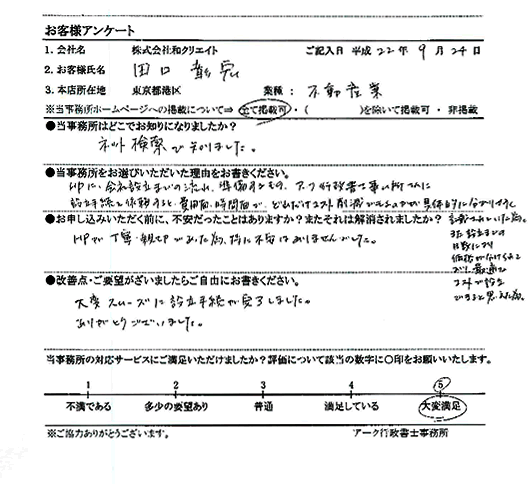 お客様アンケート
1. 会社名 株式会社和クリエイト ご記入日 平成 22年 9月 24日
2. お客様氏名 田口
3. 本店所在地 東京都港区 業種: 不動産業
※当事務所ホームページへの掲載について⇒ 全て掲載可・( )を除いて掲載可 ・ 非掲載
●当事務所はどこでお知りになりましたか?
ネット検索で知りました。
●当事務所をお選びいただいた理由をお書きください。
HPに、会社設立までの流れ、準備するもの、アーク行政書士事務所さんに
設立手続を依頼すると、費用面、時間面で、どれだけコスト削減できるのかが具体的に分かりやすく
記載されていた為。
また設立までの
日数により
価格が分けられて
おり、最適な
コストで設立
できると思えた為。
●お申し込みいただく前に、不安だったことはありますか?またそれは解消されましたか?
HPが丁寧・親切であった為、特に不安はありませんでした。
●改善点・ご要望がございましたらご自由にお書きください。
大変スムーズに設立手続が完了しました。
ありがとうございました。
当事務所の対応サービスにご満足いただけましたか?評価について該当の数字に○印をお願いいたします。
1 2 3 4 5
不満である 多少の要望あり 普通 満足している 大変満足
※ご協力ありがとうございます。 アーク行政書士事務所